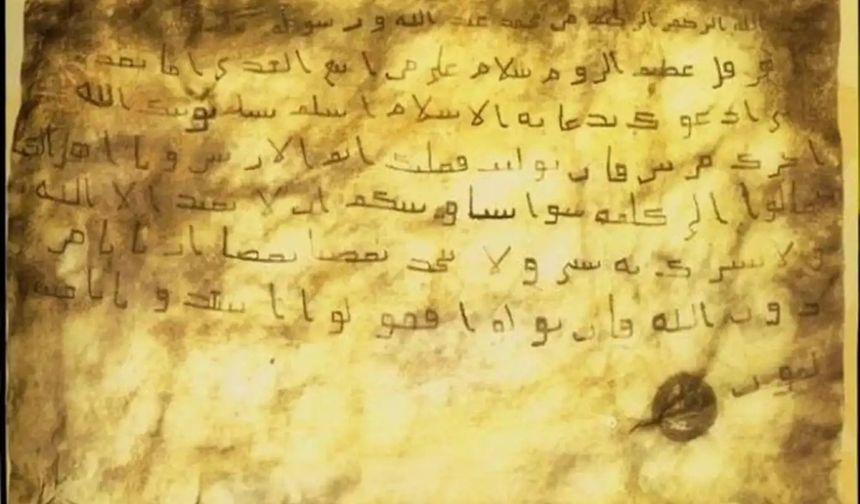 بسم الله الرحمن الرحيم من محمد عبد الله و رسوله
هرقل عظيم الروم سلام على من اتبع الهدى اما بعد
ى ادعوك بدعايه الاسلام اسلم تسلم يوتك الله
اجرك مرتين فان توليت فعليك اثم الاريسين و يا اهل الكتا
تعالوا الى كلمه سوا بيننا و بينكم ان لا نعبد الا الله
و لا نشرك به شى و لا يتخذ بعضنا بعضا اربابا من
دون الله فان تولوا فقولوا اشهدوا بانا مسـ
لمون